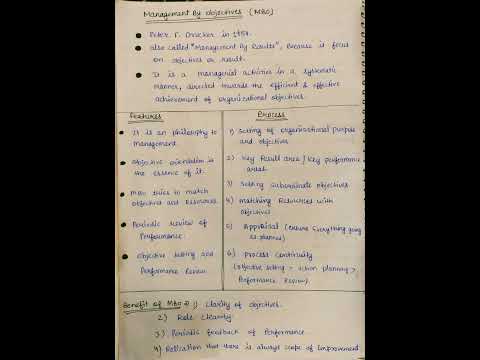 Management By Objectives (MBO)
Peter F. Drucker in 1954.
also called "Management By Results", Because it focus
on objectives or result.
It is a managerial activities in a systematic
manner, directed towards the efficient & effective
achievement of organizational objectives.
Features
It is an philosophy to
management.
Objective orientation is
the essence of it.
MBO tries to match
objectives and Resources.
Periodic review of
Performance.
Objective setting and
Performance Review
Process
1) Setting of organisational purpose
and objectives
2) Key Result area / Key performance
areas.
3) Setting subordinate objectives
4) matching Resources with
objectives
5) Appraisal (ensure everything going
as planned)
6) process continuity
(objective setting > action planning >
Performance Review).
Benefit of MBO 1) Clarity of objectives.
2) Role clearity
3) Periodic feedback of Performance.
4) that there is always scope of improvement